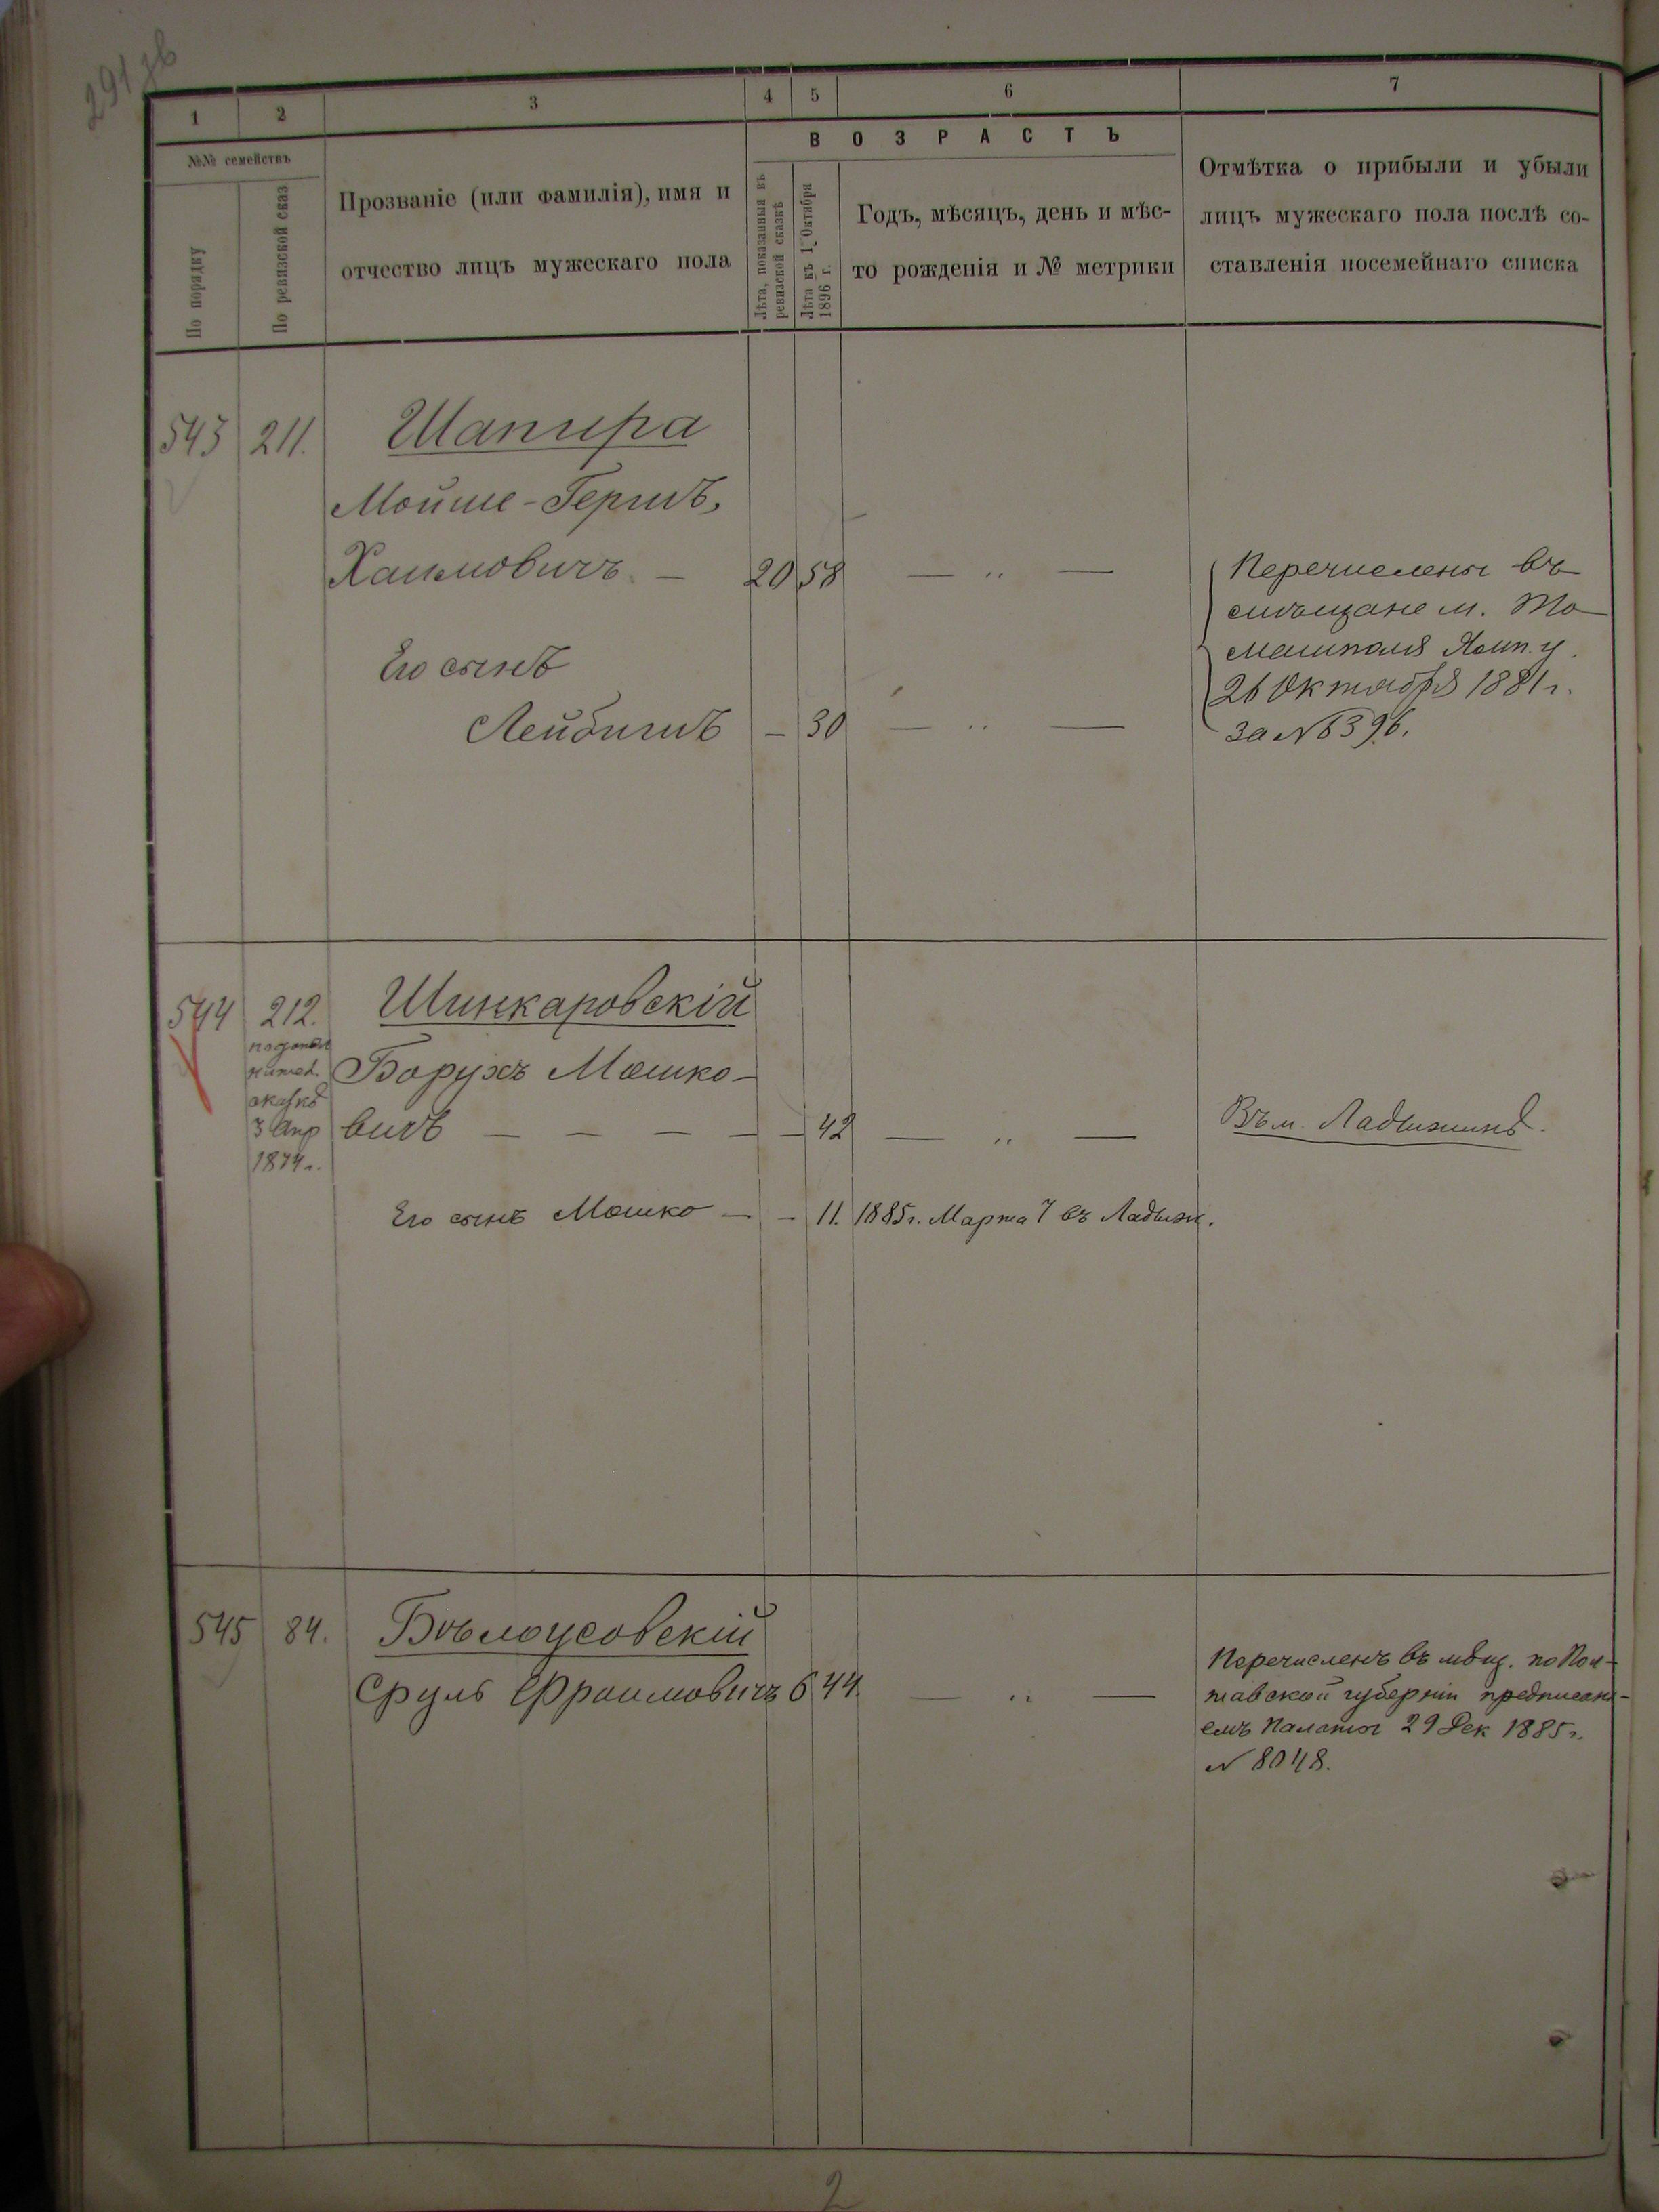 291 зв
1 2 3 4 5 6 7
№№ семействъ
По порядку
По ревизской сказ.
Прозваніе (или фамилія), имя и
отчество лицъ мужескаго пола
ВОЗРАСТЪ
Лѣта, показанныя въ
ревизской сказкѣ
Лѣта къ 1 Октября
1896 г.
Годъ, мѣсяцъ, день и мѣс-
то рожденія и № метрики
Отмѣтка о прибыли и убыли
лицъ мужескаго пола послѣ со-
ставленія посемейнаго списка
543 211. Шапира
Мойше-Гершъ,
Хаимовичъ. — 20 58 — „ —
Его сынъ
Лейбишъ — 30 — „ —
Перечислены въ
мѣщане м. То-
машполя Ямп. у.
26 Октября 1881 г.
за № 6396.
544 212. Шинкаровскій
по дополнител.
сказкѣ
3 Апр
1874 г.
Борухъ Мошко-
вичъ — — — — — 42 — „ —
Въ м. Ладыжинѣ.
Его сынъ Мошко — — 11. 1885 г. Марта 7 въ Ладыж.
545 84. Бѣлоусовскій
Сруль Фроимовичъ 6 44. — „ —
Перечисленъ въ мѣщ. по Пол-
тавской губерніи предписані-
емъ Палаты 29 Дек 1885 г.
№ 8048.
2